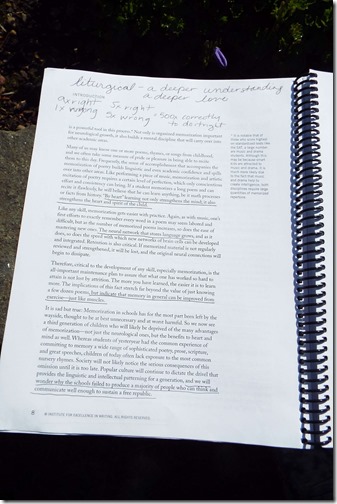 liturgical - a deeper understanding
a deeper love
INTRODUCTION
9x right 5x right
1x wrong 5x wrong = 50x correctly
to do it right
is a powerful tool in this process. Not only is organized memorization important
for neurological growth, it also builds a mental discipline that will carry over into
other academic areas.
Many of us may know one or more poems, rhymes, or songs from childhood,
and we often take some measure of pride or pleasure in being able to recite
them to this day. Frequently, the sense of accomplishment that accompanies the
memorization of poetry builds linguistic and even academic confidence and spills
over into other areas. Like performing a piece of music, memorization and artistic
recitation of poetry requires a certain level of perfection, which only conscientious
effort and consistency can bring. If a student memorizes a long poem and can
recite it flawlessly, he will believe that he can learn anything, be it math processes
or facts from history. "By heart" learning not only strengthens the mind; it also
strengthens the heart and spirit of the child.
Like any skill, memorization gets easier with practice. Again, as with music, one's
first efforts to exactly remember every word in a poem may seem labored and
difficult, but as the number of memorized poems increases, so does the ease of
mastering new ones. The neural network that stores language grows, and as it
does, so does the speed with which new networks of brain cells can be developed
and integrated. Retention is also critical. If memorized material is not regularly
reviewed and strengthened, it will be lost, and the original neural connections will
begin to dissipate.
Therefore, critical to the development of any skill, especially memorization, is the
all-important maintenance plan to insure that what one has worked so hard to
attain is not lost by attrition. The more you have learned, the easier it is to learn
more. The implications of this fact stretch far beyond the value of just knowing
a few dozen poems, but indicate that memory in general can be improved from
exercise—just like muscles.
It is sad but true: Memorization in schools has for the most part been left by the
wayside, thought to be at best unnecessary and at worst harmful. So we now see
a third generation of children who will likely be deprived of the many advantages
of memorization—not just the neurological ones, but the benefits to heart and
mind as well. Whereas students of yesteryear had the common experience of
committing to memory a wide range of sophisticated poetry, prose, scripture,
and great speeches, children of today often lack exposure to the most common
nursery rhymes. Society will not likely notice the serious consequences of this
omission until it is too late. Popular culture will continue to dictate the drivel that
provides the linguistic and intellectual patterning for a generation, and we will
wonder why the schools failed to produce a majority of people who can think and
communicate well enough to sustain a free republic.
8
© INSTITUTE FOR EXCELLENCE IN WRITING. ALL RIGHTS RESERVED.